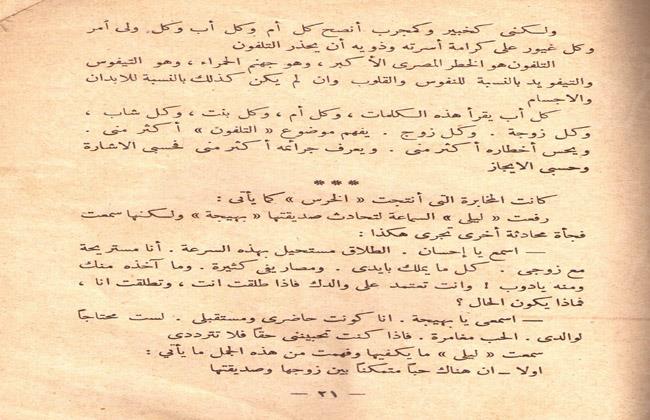 ولسكنى كخبير وكمجرب أنصح كل أم وكل أب وكل ولى أمر
وكل غيور على كرامة أسرته وذويه أن يحذر التلفون
التلفون هو الخطر المصرى الأكبر ، وهو جهنم الحمراء ، وهو التيفوس
والتيفويد بالنسبة للنفوس والقلوب وان لم يكن كذلك بالنسبة للابدان
والاجسام
كل أب يقرأ هذه السكلمات ، وكل أم ، وكل بنت ، وكل شاب ،
وكل زوجة . وكل زوج . يفهم موضوع « التلفون » أكثر منى .
ويحس أخطاره أكثر منى . ويعرف جرائمه أكثر منى فحسبى الاشارة
وحسبى الايجاز
***
كانت المخابرة التى أنتجت « الخرس » كما يأتى :
رفعت « ليلى » السماعة لتحادث صديقتها « بهيجة » ولسكنها سمعت
فجأة محادثة أخرى تجرى هكذا :
— اسمع يا إحسان . الطلاق مستحيل بهذه السرعة . أنا مستريحة
مع زوجى . كل ما يملك بايدى . ومصاريفى كثيرة . وما آخذه منك
ومنه يادوب ! وانت تعتمد على والدك فاذا طلقت انت ، وتطلقت انا ،
فماذا يكون الحال ؟
— اسمعى يا بهيجة . انا كونت حاضرى ومستقبلى . لست محتاجاً
لوالدى . الحب مغامرة . فاذا كنت تحبيننى حقاً فلا تترددى
سمعت « ليلى » ما يكفيها وفهمت من هذه الجمل ما يأتى :
اولا — ان هناك حباً متمكناً بين زوجها وصديقتها
— ٢١ —